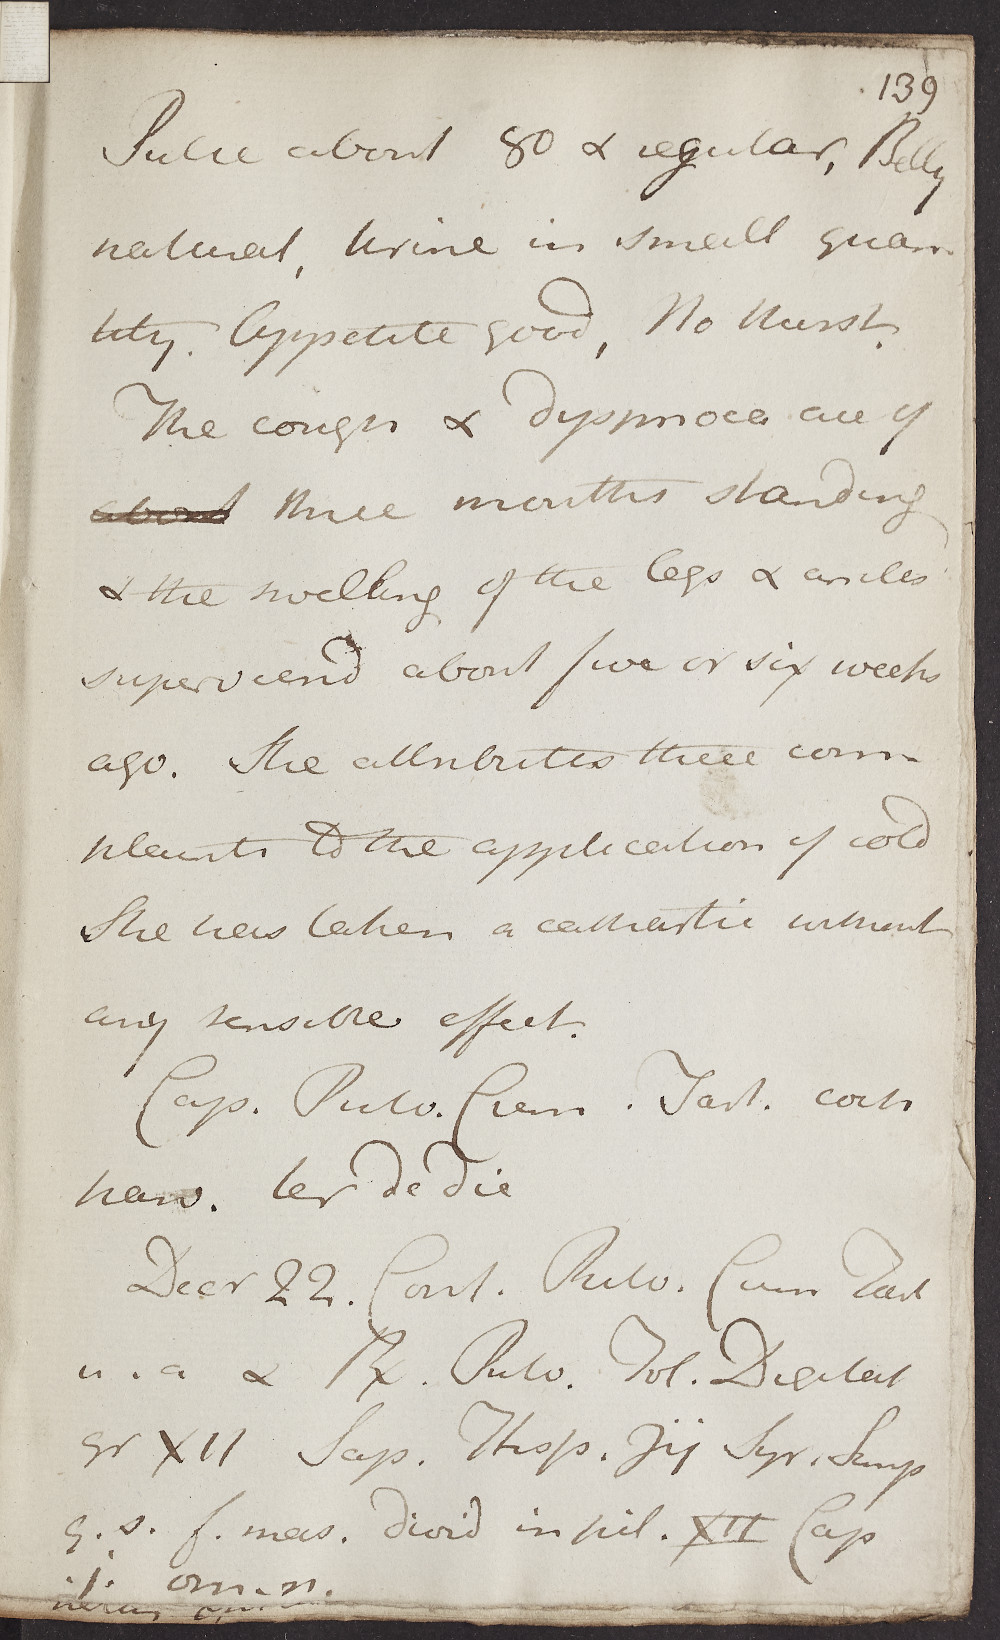 139
Pulse about 80 & regular, Belly
natural, Urine in small quan-
tity. Appetite good, No thirst.
The cough & dyspnoea are of
about three months standing
& the swelling of the legs & ancles
superviend about five or six weeks
ago. She attributes these com-
plaints to the application of cold
She has taken a cathartic without
any sensible effect.
Cap. Pulv. Crem. Tart. coch
parv. ter de die
Decr 22. Cont. Pulv. Crem Tart
u. a & Rx. Pulv. Fol. Digital
gr XII Sap. Hisp. ʒij Syr. Simp
q.s. f. mas. divid in pil. XII Cap
.j. om. n.